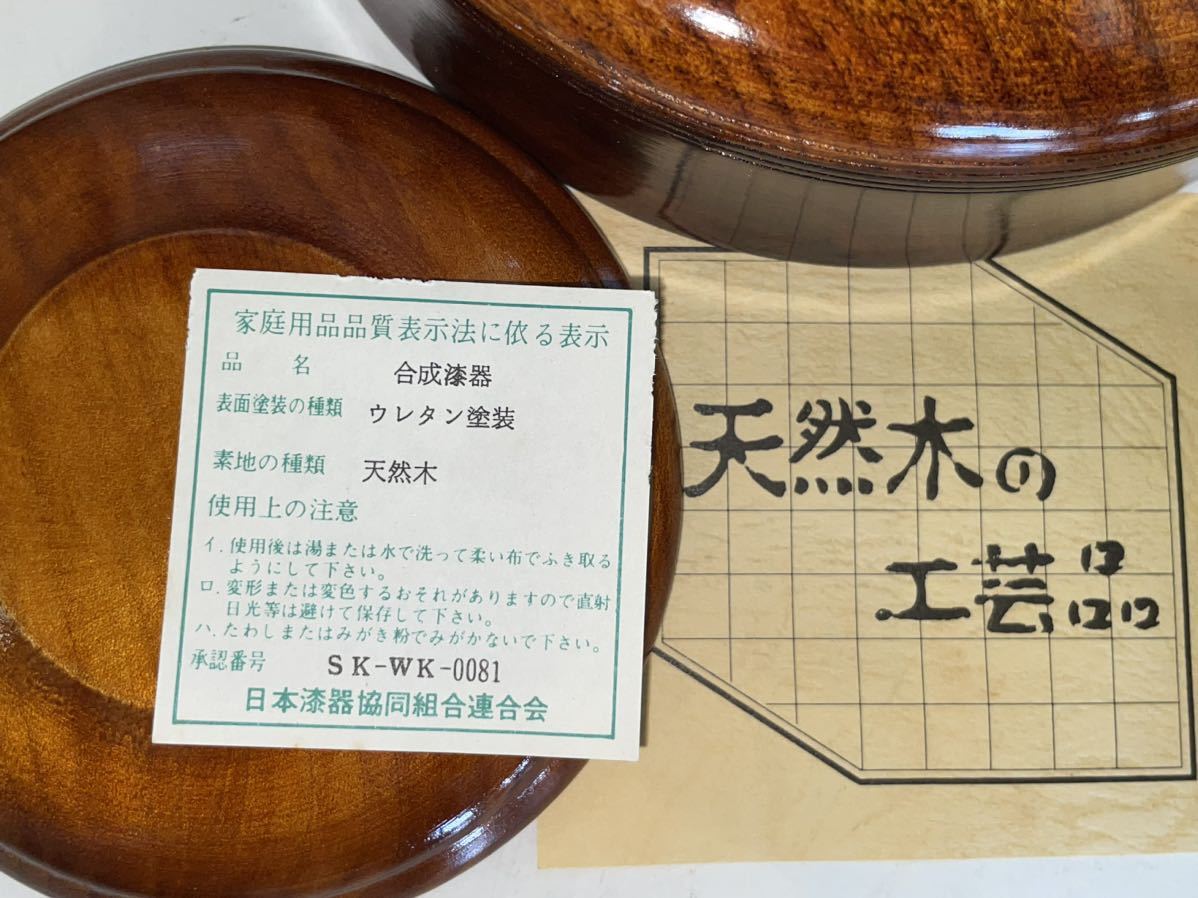 家庭用品品質表示法に依る表示
品　名　合成漆器
表面塗装の種類　ウレタン塗装
素地の種類　天然木
使用上の注意
イ. 使用後は湯または水で洗って柔い布でふき取る
ようにして下さい。
ロ. 変形または変色するおそれがありますので直射
日光等は避けて保存して下さい。
ハ. たわしまたはみがき粉でみがかないで下さい。
承認番号　SK-WK-0081
日本漆器協同組合連合会
天然木の
工芸品